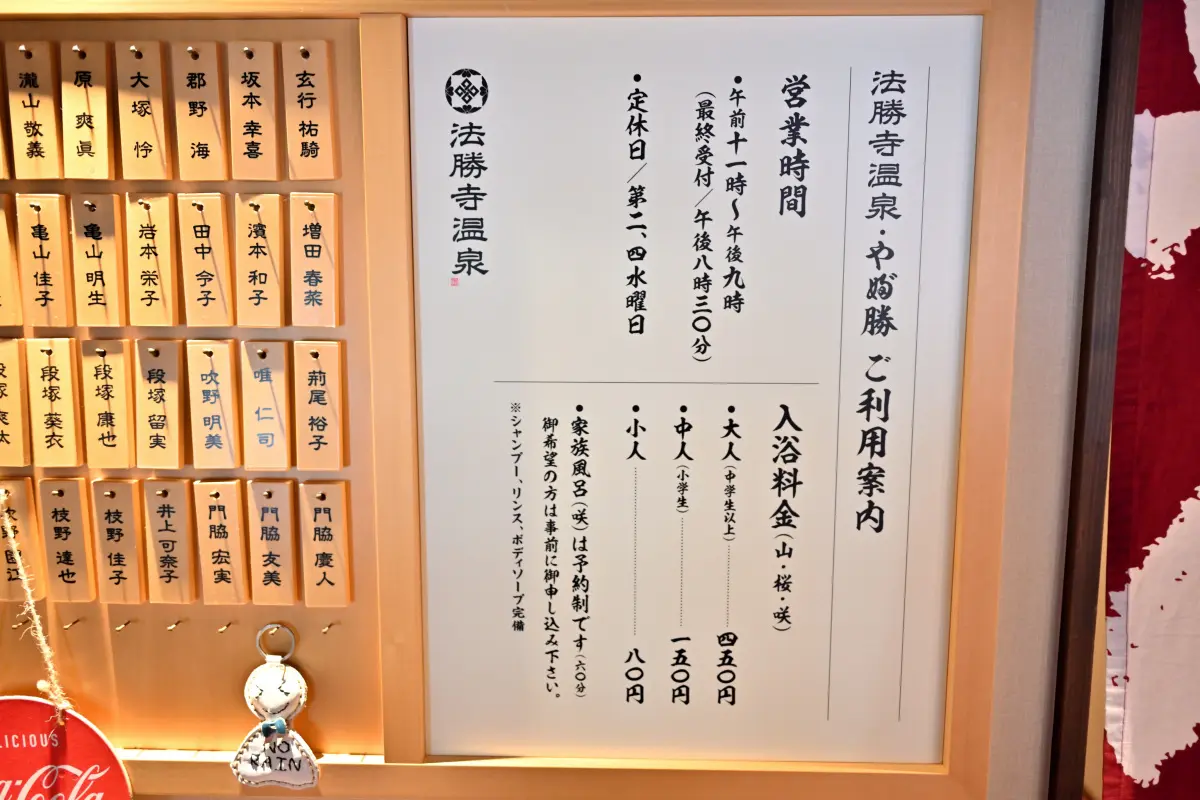 法勝寺温泉・やお勝 ご利用案内
営業時間
●午前十一時～午後九時
(最終受付／午後八時三〇分)
●定休日／第二、四水曜日
入浴料金(山・桜・咲)
●大人(中学生以上) 四五〇円
●中人(小学生) 一五〇円
●小人 八〇円
●家族風呂(咲)は予約制です(六〇分)
御希望の方は事前に御申し込み下さい。
※シャンプー、リンス、ボディソープ完備
法勝寺温泉
玄行 祐騎
坂本 幸喜
郡野 海
大塚 怜
原 爽眞
瀧山 敬義
増田 春菜
濱本 和子
田中 令子
岩本 栄子
亀山 明生
亀山 佳子
荊尾 裕子
唯 仁司
吹野 明美
段塚 留実
段塚 康也
段塚 葵衣
門脇 慶人
門脇 友美
門脇 宏実
井上 可奈子
枝野 佳子
枝野 達也
NO
RAIN
LICIOUS
Cola